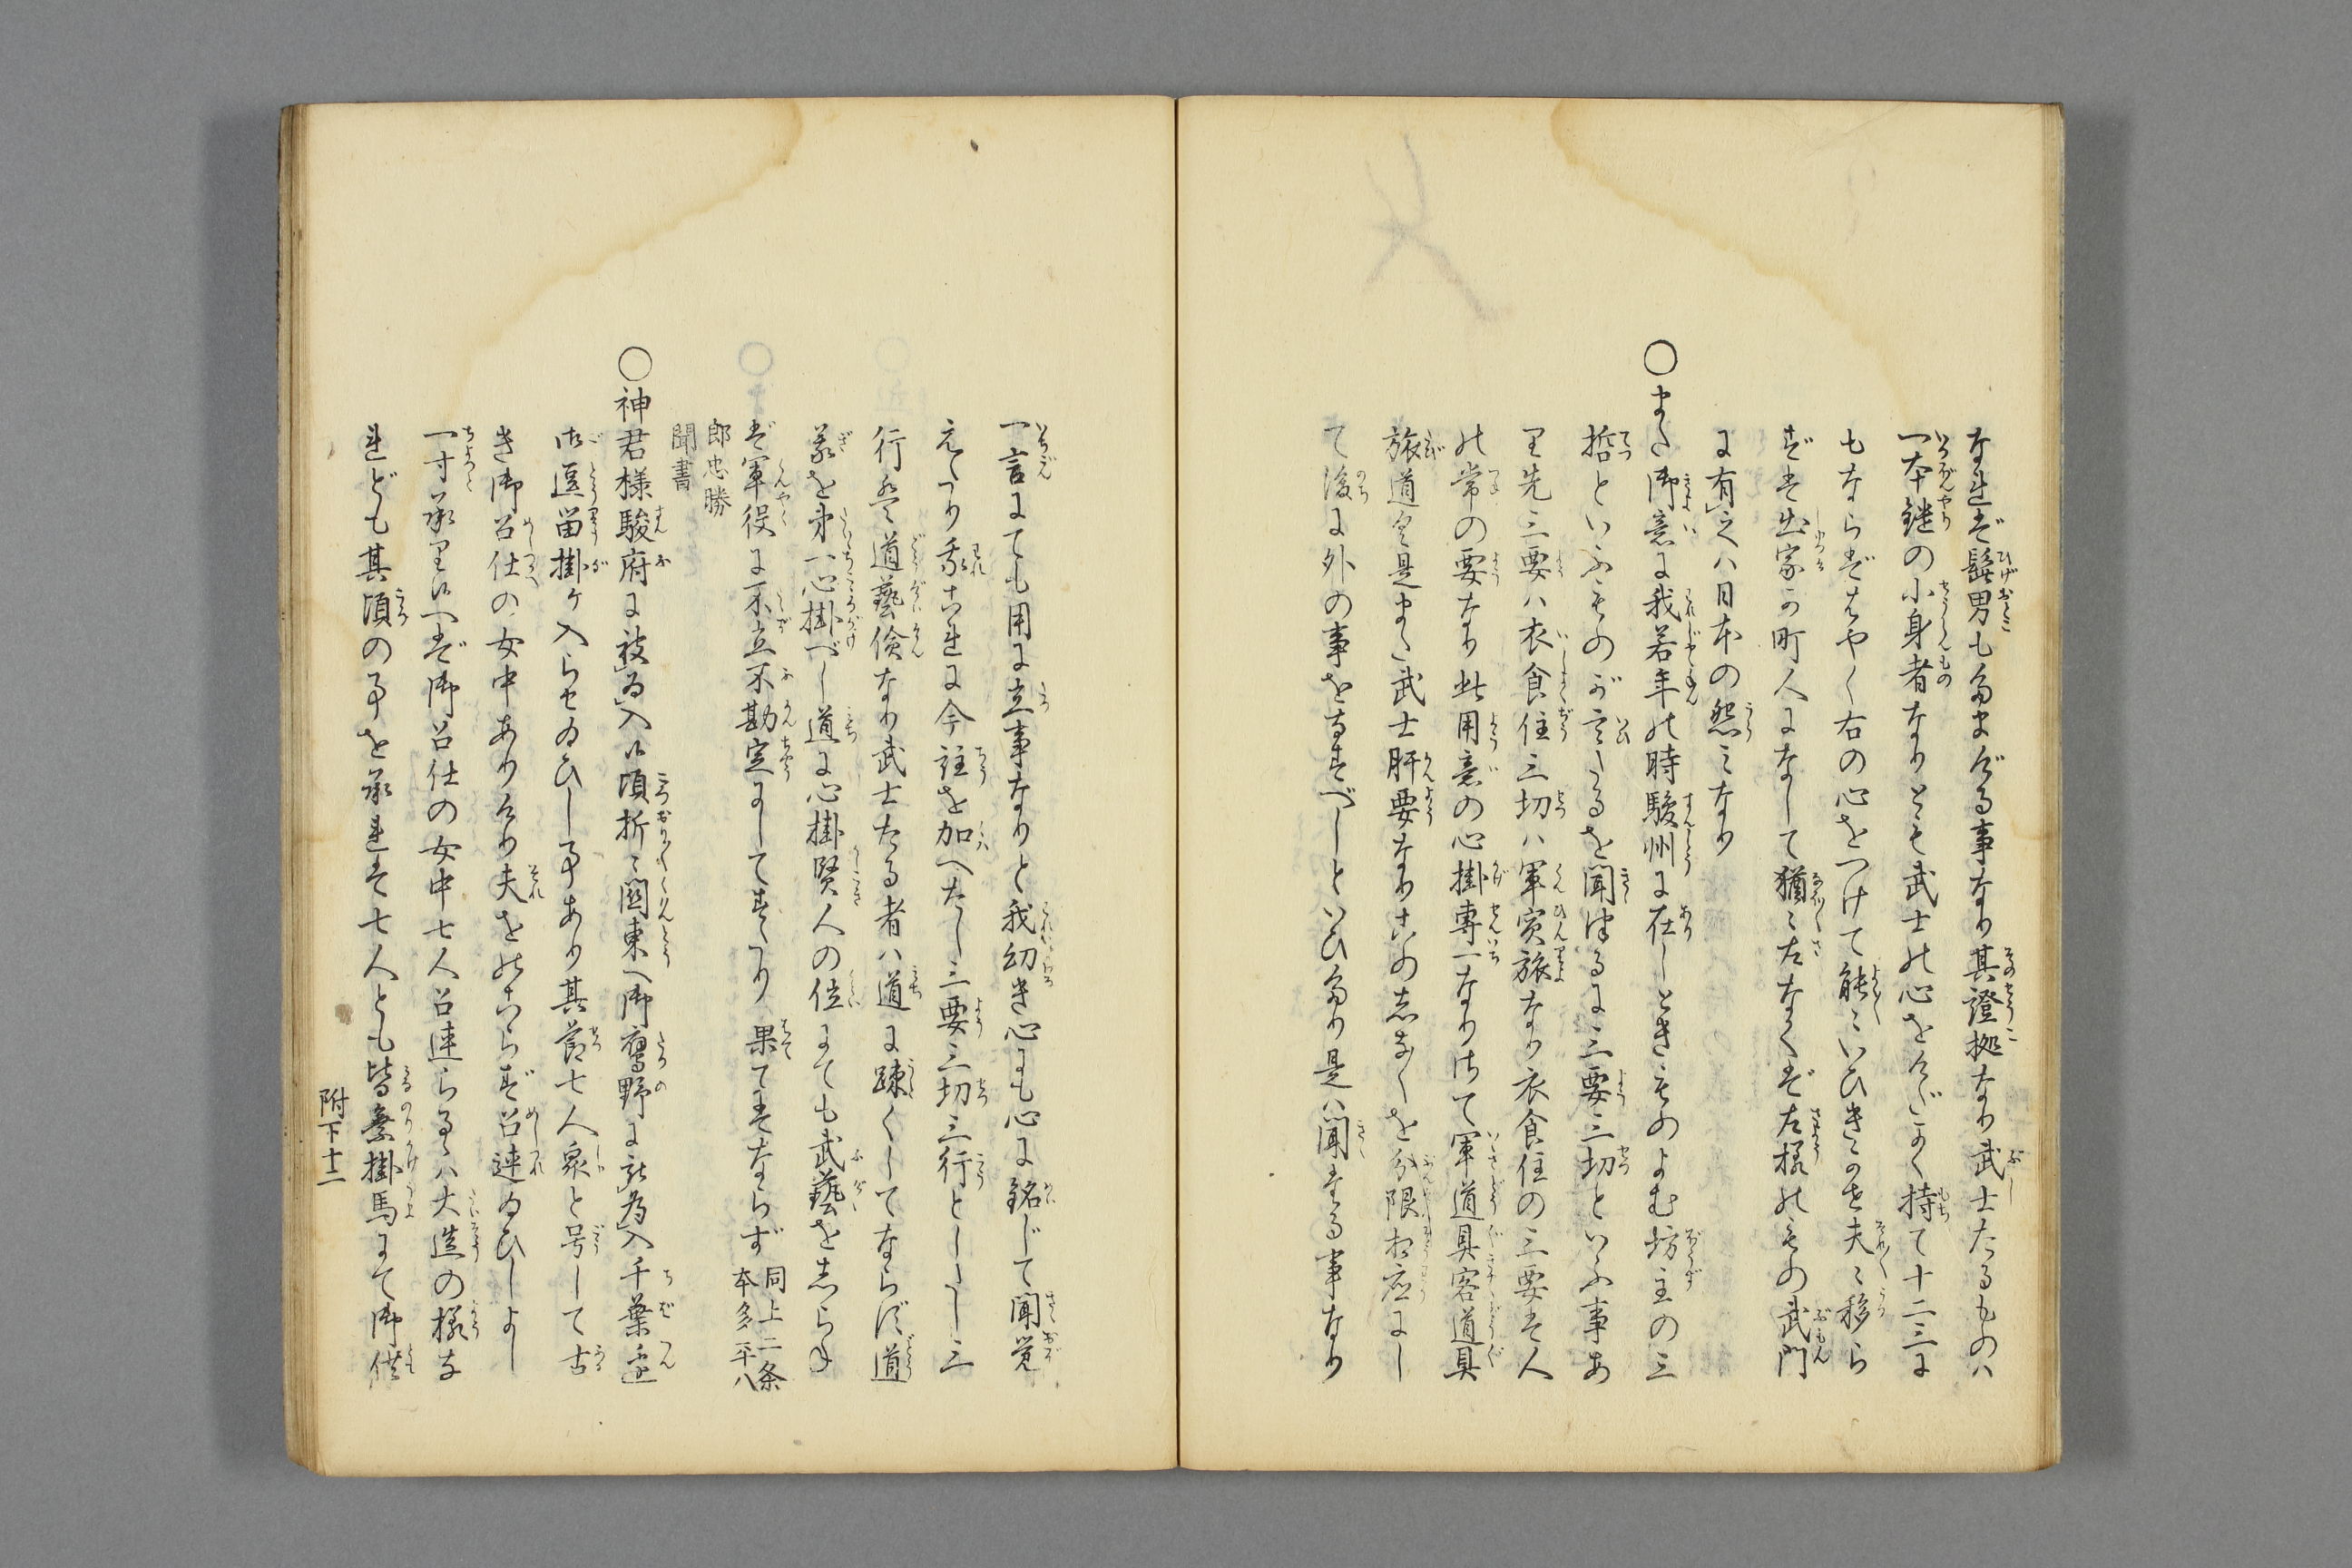 なれば髭男も多まざる事なり其證拠なり武士たるものハ
一本鑓の小身者なりとも武士の心をんごろく持て十二三に
もならばはやく右の心をつけて能ゝいひきかせ夫ゝ移ら
ずば出家か町人になして猶ゝ左なくば左様のもの武門
に有之ハ日本の怨ミなり
○また御意に我若年の時駿州に在しときものよむ坊主の三
哲といふものが言たるを聞けるに三要三切といふ事あ
り先三要ハ衣食住三切ハ軍賓旅なり衣食住の三要は人
の常の要なり此用意の心掛専一なりさて軍道具客道具
旅道具是また武士肝要なりこの志なくを分限相応にし
て後に外の事をなすべしといひたり是ハ聞たる事なり
一言にても用に立事なりと我幼き心にも心に銘じて聞覚
えたり我これに今註を加へたし三要三切三行としたし三
行は道藝倹なり武士たる者ハ道に疎くしてならず道
義を第一心掛べし道に心掛賢人の位にても武藝をしらね
ば軍役に不立不勘定にしてすたり果てはならず 同上二条本多平八
郎忠勝聞書
○神君様駿府に被為入候頃折ゝ関東へ御鷹野に被為入千葉辺
御逗留掛ケ入らせ給ひし事あり其節七人衆と号して古
き御召仕の女中ありけり夫をのこらず召連給ひしよし
一寸承り候へば御召仕の女中七人召連らるゝハ大造の様な
れども其頃の事を承れば七人とも皆乗掛馬にて御供
附下十二